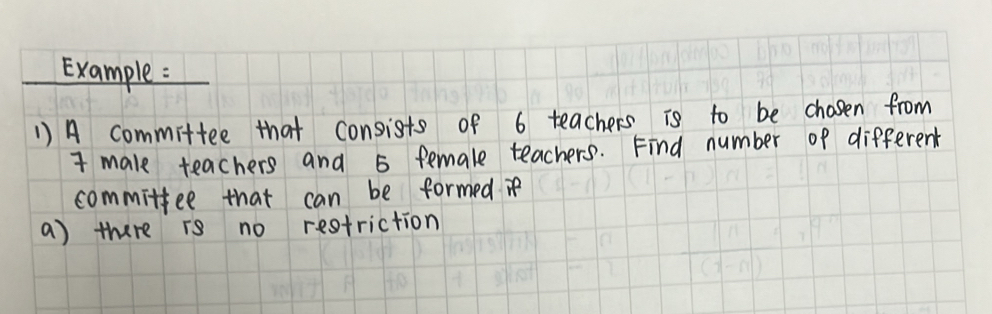 Example :
1) A committee that consists of 6 teachers is to be chosen from
7 male teachers and 5 female teachers. Find number of different
committee that can be formed if
a) there is no restriction